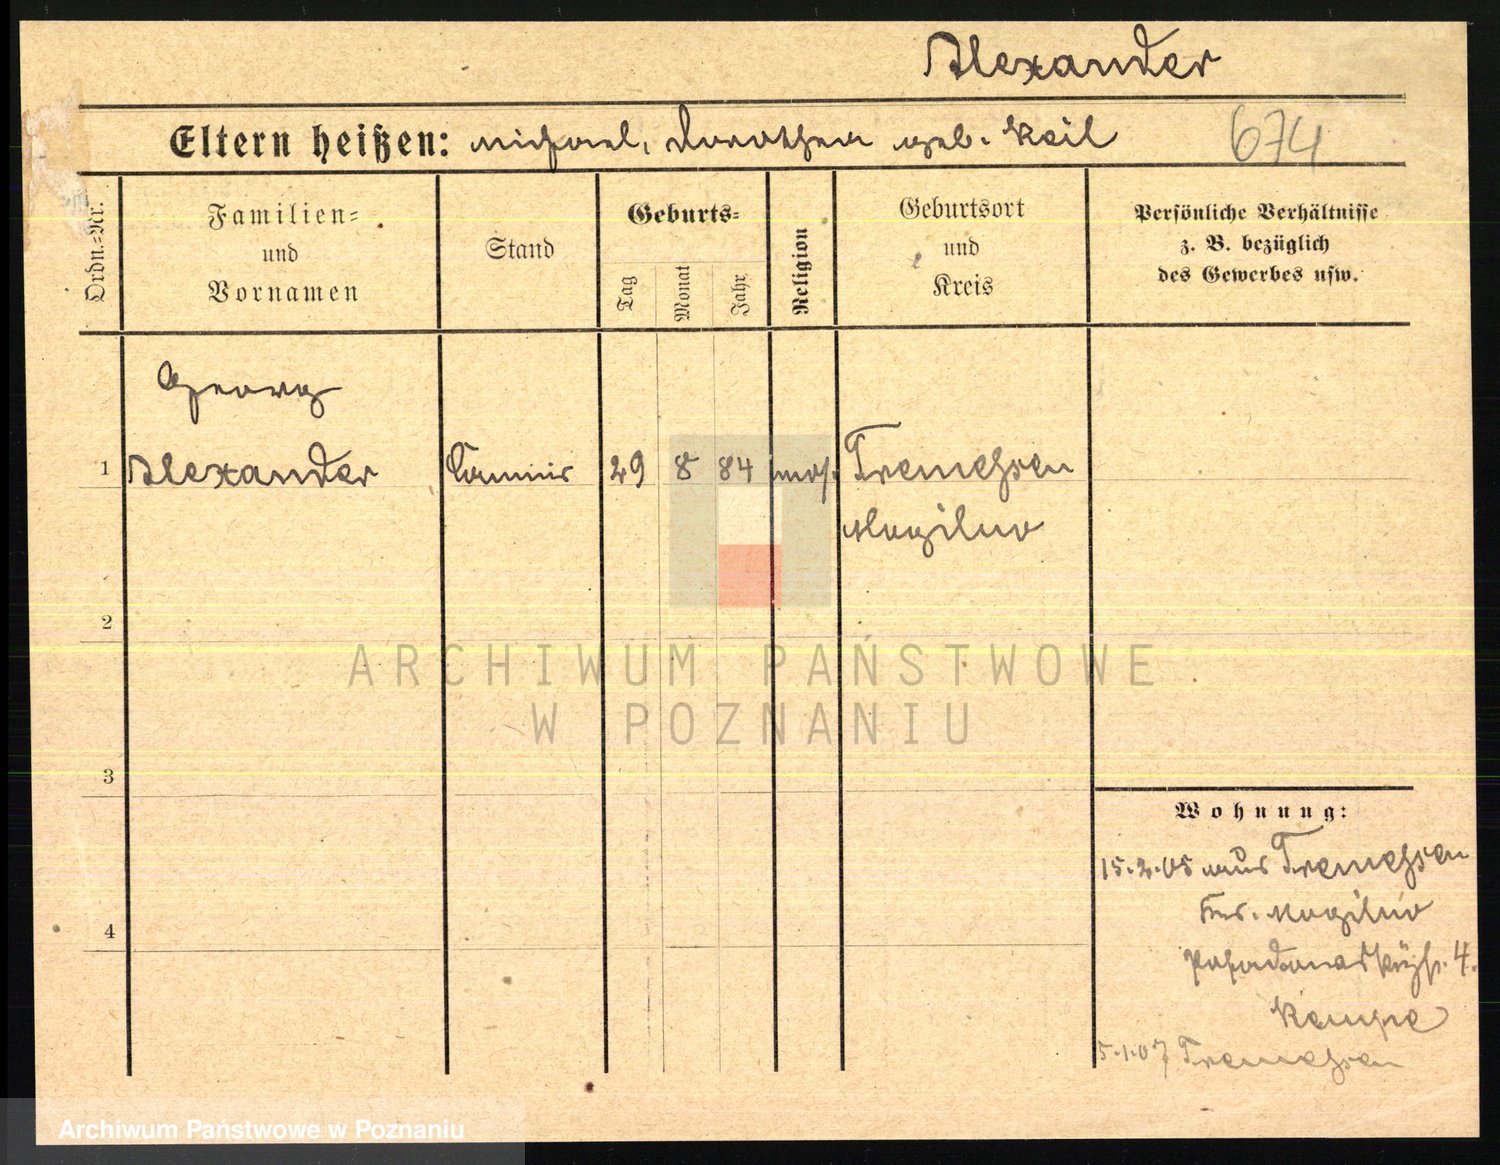 Alexander
Eltern heißen: Michael, Dorothea geb. Keil
674
Ordn.=Nr.
Familien=
und
Vornamen
Stand
Geburts=
Tag
Monat
Jahr
Religion
Geburtsort
und
Kreis
Persönliche Verhältnisse
z. B. bezüglich
des Gewerbes usw.
Georg
1 Alexander Commis 29 8 84 mos. Tremessen
Mogilno
2
3
4
Wohnung:
15.2.05 aus Tremessen
Krs. Mogilno
4.
5.1.07 Tremessen
ARCHIWUM PAŃSTWOWE
W POZNANIU
Archiwum Państwowe w Poznaniu